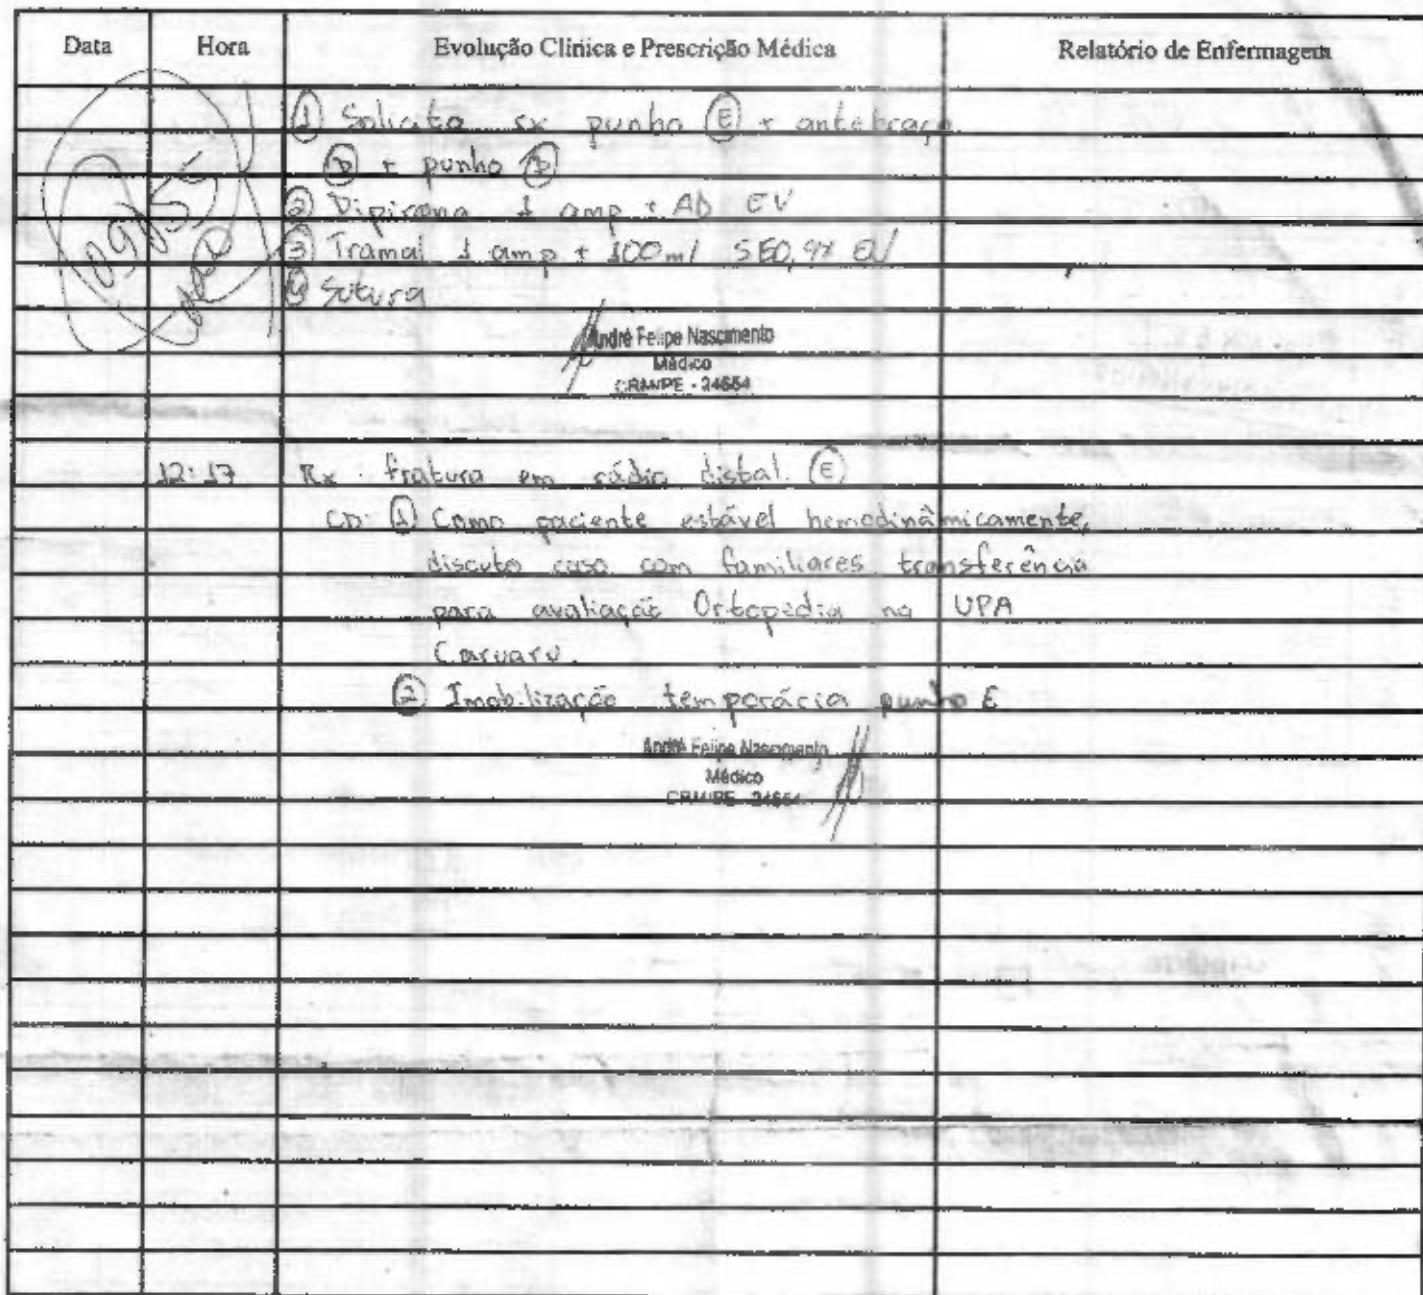 Data Hora Evolução Clínica e Prescrição Médica Relatório de Enfermagem
① Solicito rx punho Ⓔ + antebraço
Ⓓ + punho Ⓓ
② Dipirona 1 amp + AD EV
③ Tramal 1 amp + 100ml SF0,9% EV
④ Sutura
09/05
André Felipe Nascimento
Médico
CRM/PE - 24554
12:17 Rx: fratura em rádio distal Ⓔ
CD: ① Como paciente estável hemodinâmicamente,
discuto caso com familiares transferência
para avaliação Ortopedia na UPA
Caruaru.
② Imobilização temporária punho E
André Felipe Nascimento
Médico
CRM/PE - 24554